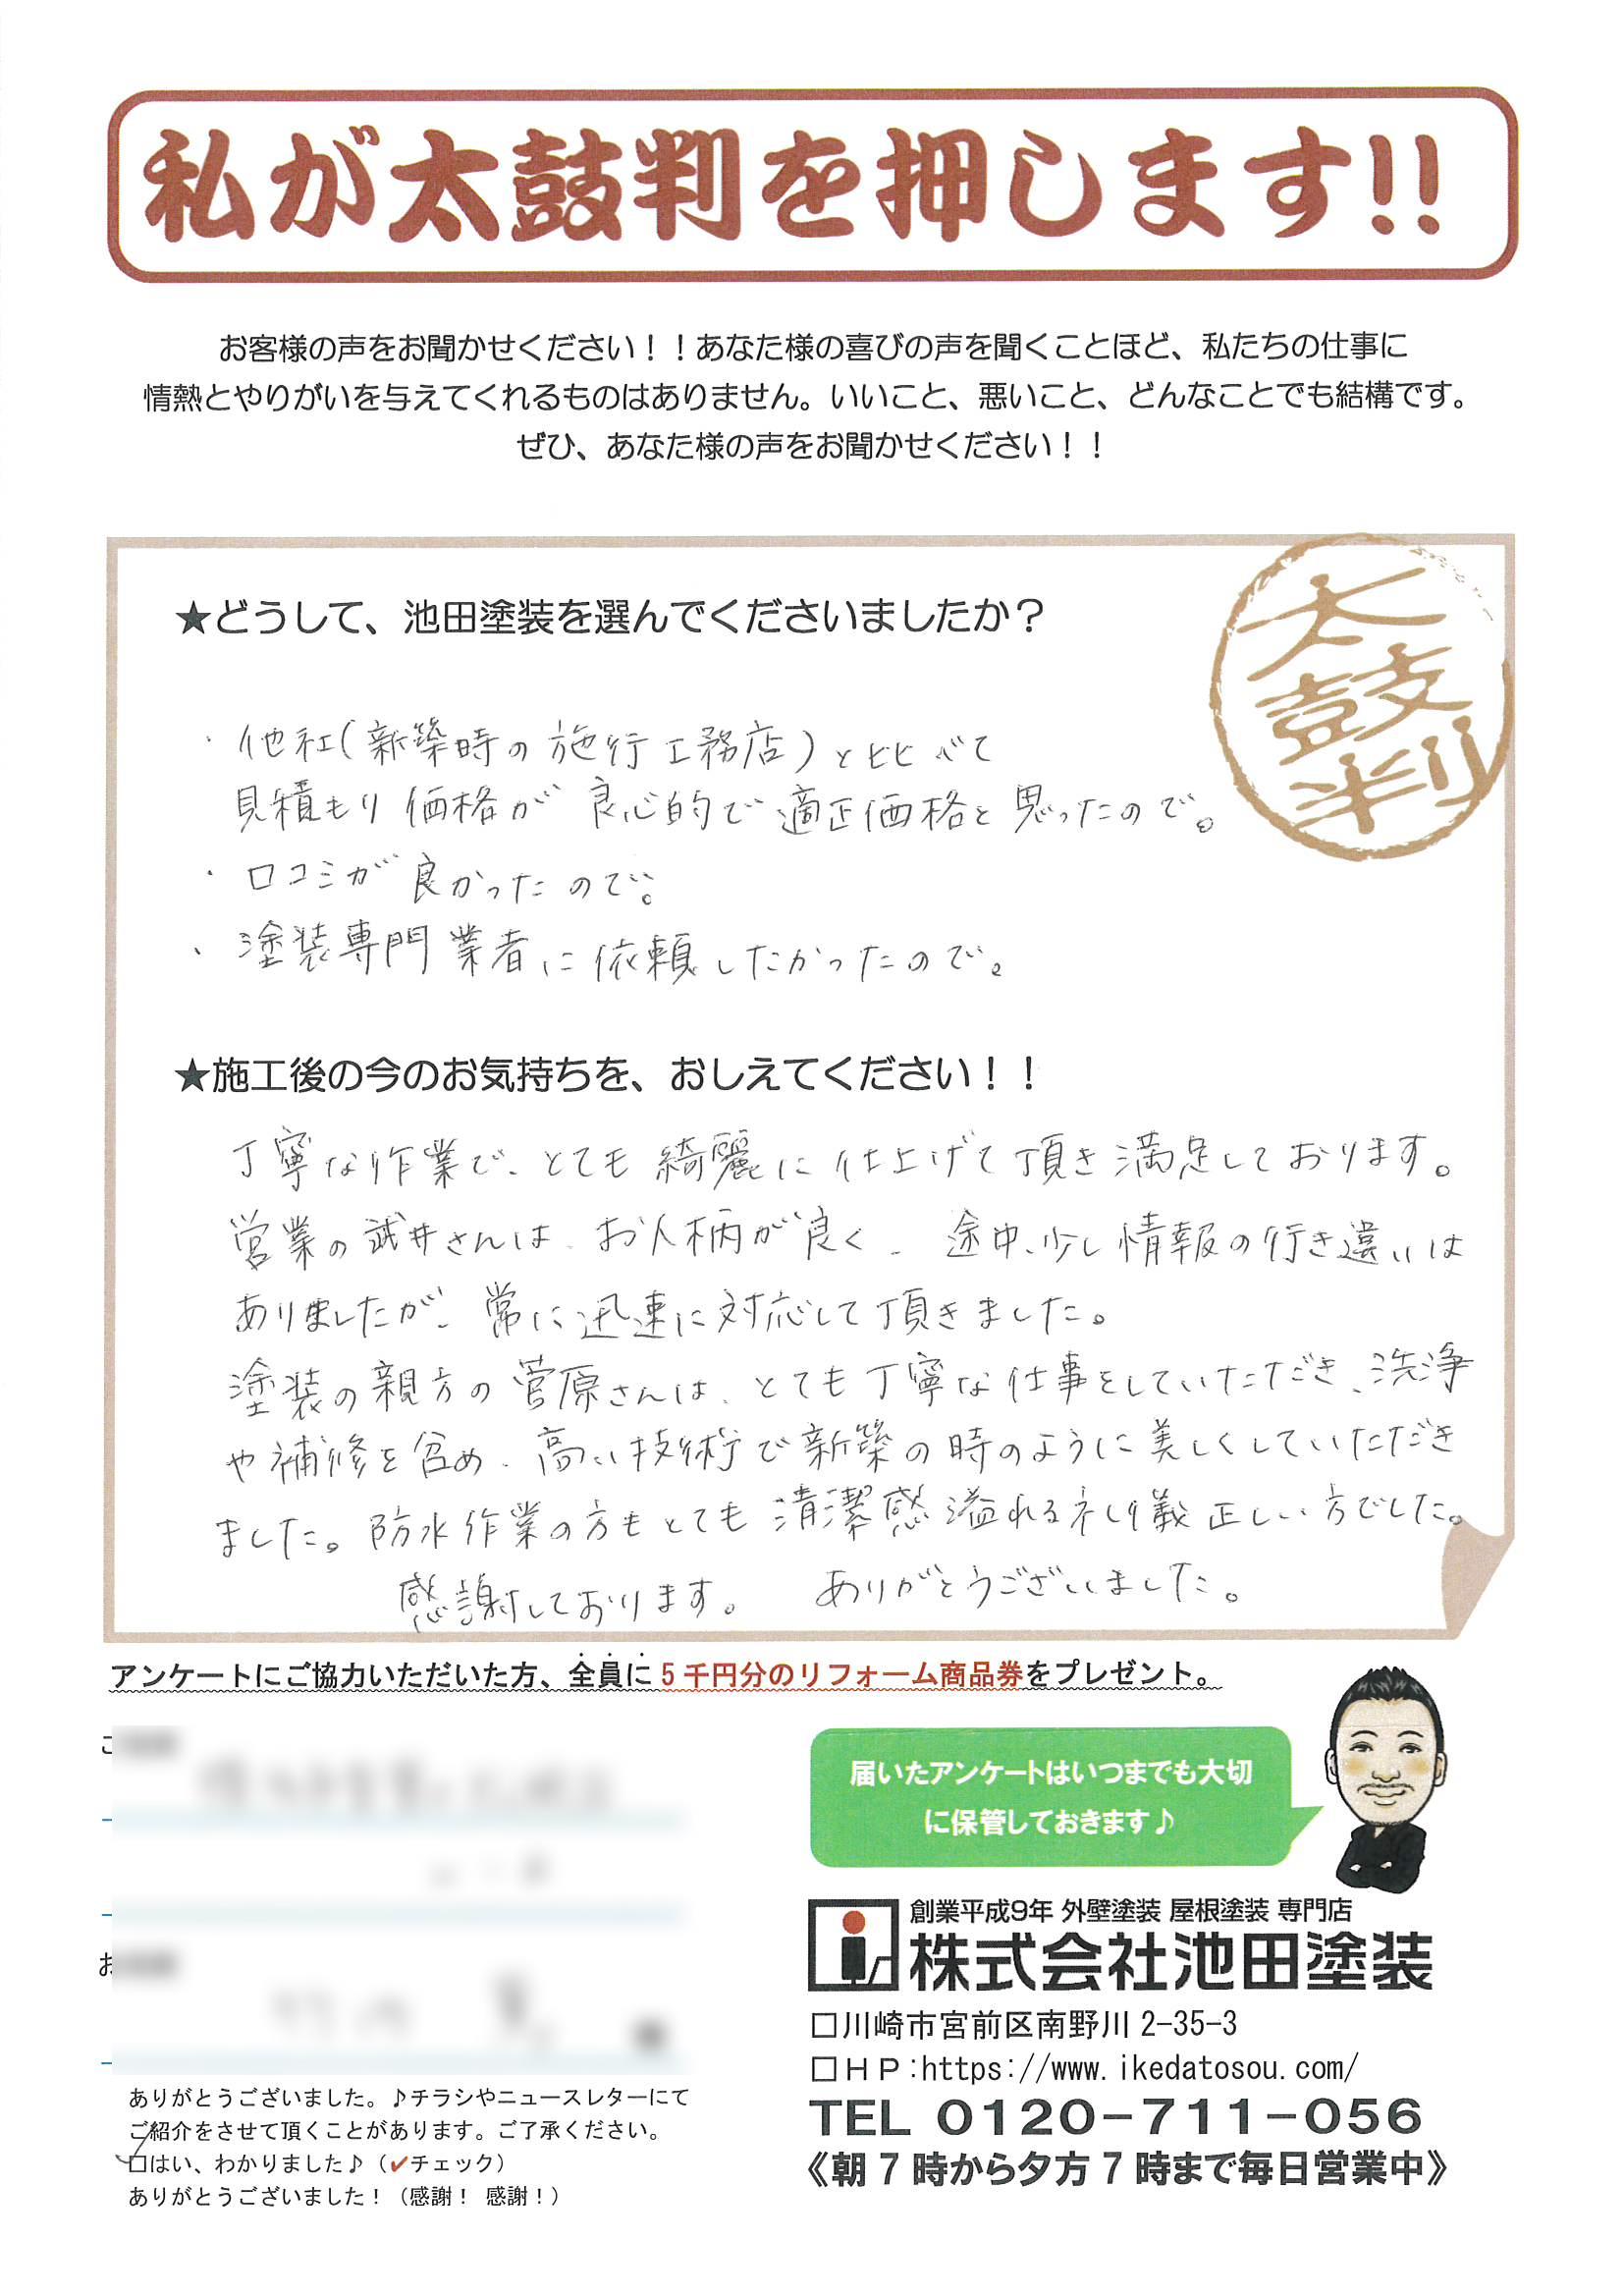 私が太鼓判を押します!!
お客様の声をお聞かせください！！あなた様の喜びの声を聞くことほど、私たちの仕事に
情熱とやりがいを与えてくれるものはありません。いいこと、悪いこと、どんなことでも結構です。
ぜひ、あなた様の声をお聞かせください！！
太鼓判
★どうして、池田塗装を選んでくださいましたか？
・他社(新築時の施行工務店)と比べて
見積もり価格が良心的で適正価格と思ったので。
・口コミが良かったので。
・塗装専門業者に依頼したかったので。
★施工後の今のお気持ちを、おしえてください！！
丁寧な作業で、とても綺麗に仕上げて頂き満足しております。
営業の武井さんは、お人柄が良く、途中、少し情報の行き違いは
ありましたが、常に迅速に対応して頂きました。
塗装の親方の菅原さんは、とても丁寧な仕事をしていただき、洗浄
や補修を含め、高い技術で新築の時のように美しくしていただき
ました。防水作業の方もとても清潔感溢れる礼儀正しい方でした。
感謝しております。 ありがとうございました。
アンケートにご協力いただいた方、全員に5千円分のリフォーム商品券をプレゼント。
届いたアンケートはいつまでも大切
に保管しておきます♪
創業平成9年 外壁塗装 屋根塗装 専門店
株式会社池田塗装
□川崎市宮前区南野川2-35-3
□ＨＰ:https://www.ikedatosou.com/
TEL 0120-711-056
《朝7時から夕方7時まで毎日営業中》
ありがとうございました。♪チラシやニュースレターにて
ご紹介をさせて頂くことがあります。ご了承ください。
□はい、わかりました♪（✔チェック）
ありがとうございました！（感謝！ 感謝！）